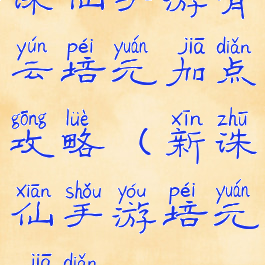 诛仙手游有
yún péi yuán jiā diǎn
云培元加点
gōng lüè xīn zhū
攻略（新诛
xiān shǒu yóu péi yuán
仙手游培元
jiā diǎn